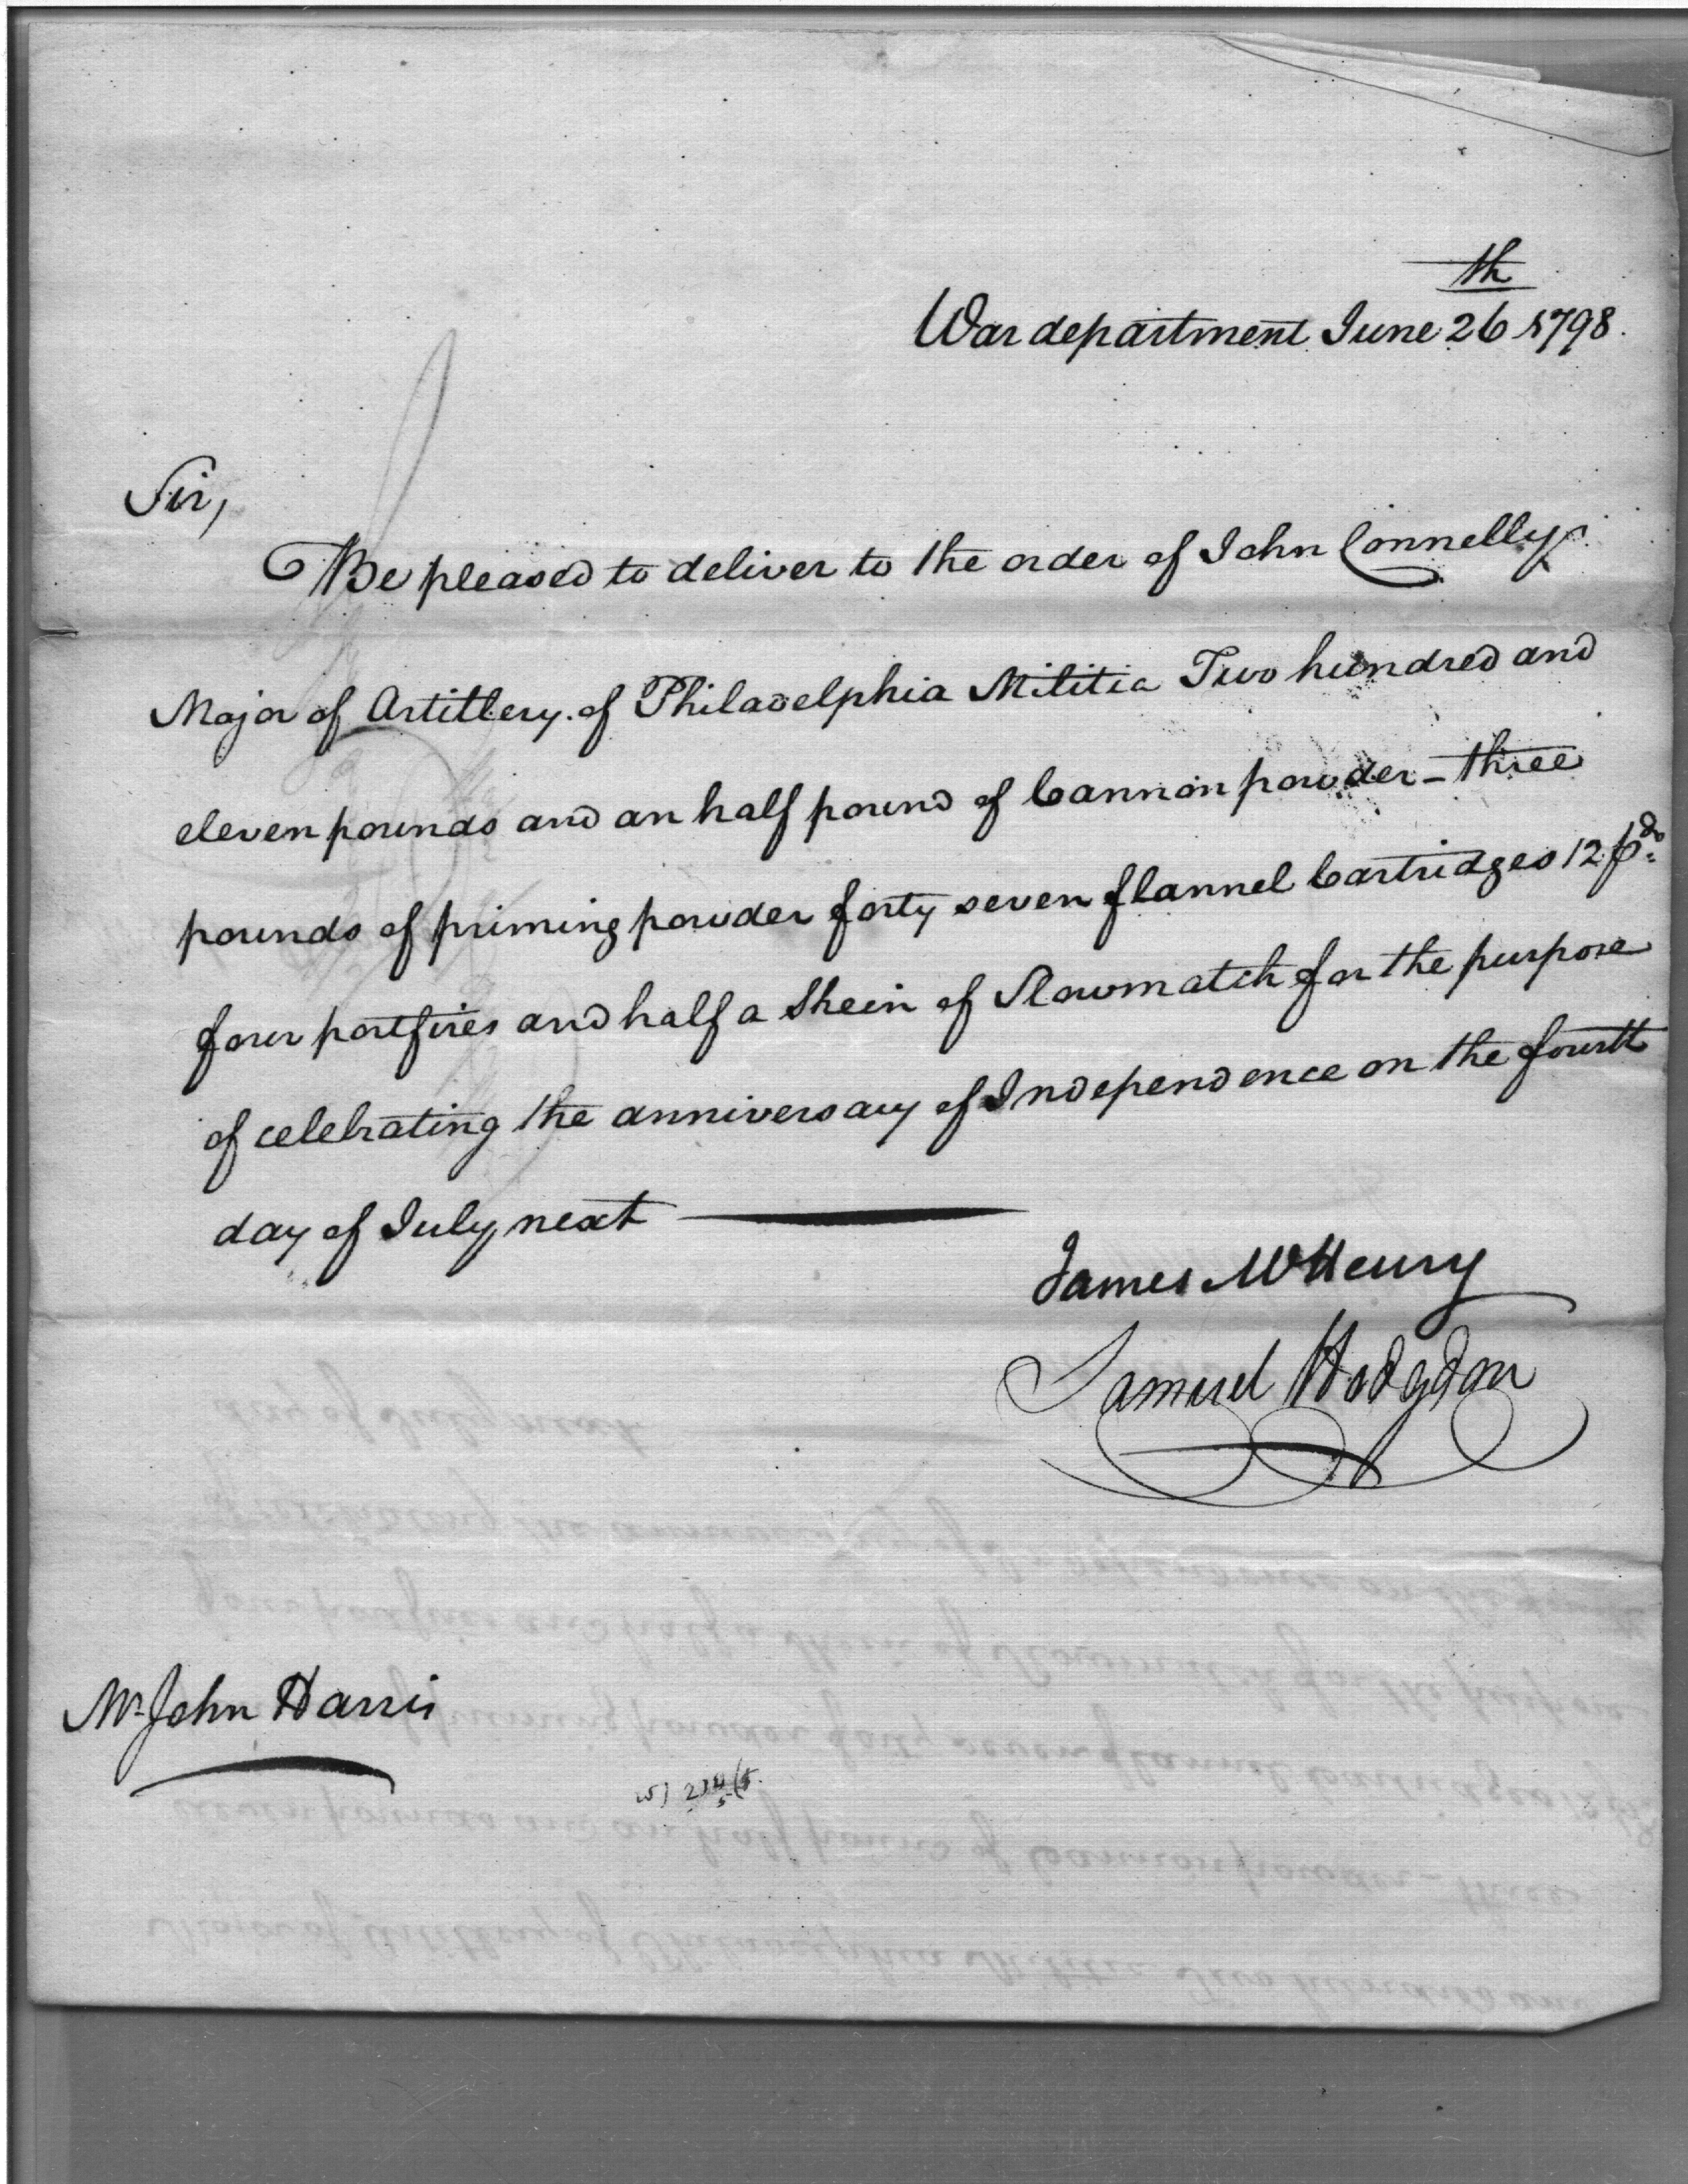 War department June 26th 1798.
Sir,
Be pleased to deliver to the order of John Connelly
Major of Artillery of Philadelphia Militia Two hundred and
eleven pounds and an half pound of Cannon powder - three
pounds of priming powder forty seven flannel Cartridges 12 pdr
four portfires and half a Skein of Slowmatch for the purpose
of celebrating the anniversary of Independence on the fourth
day of July next
James McHenry
Samuel Hodgdon
Mr John Harris